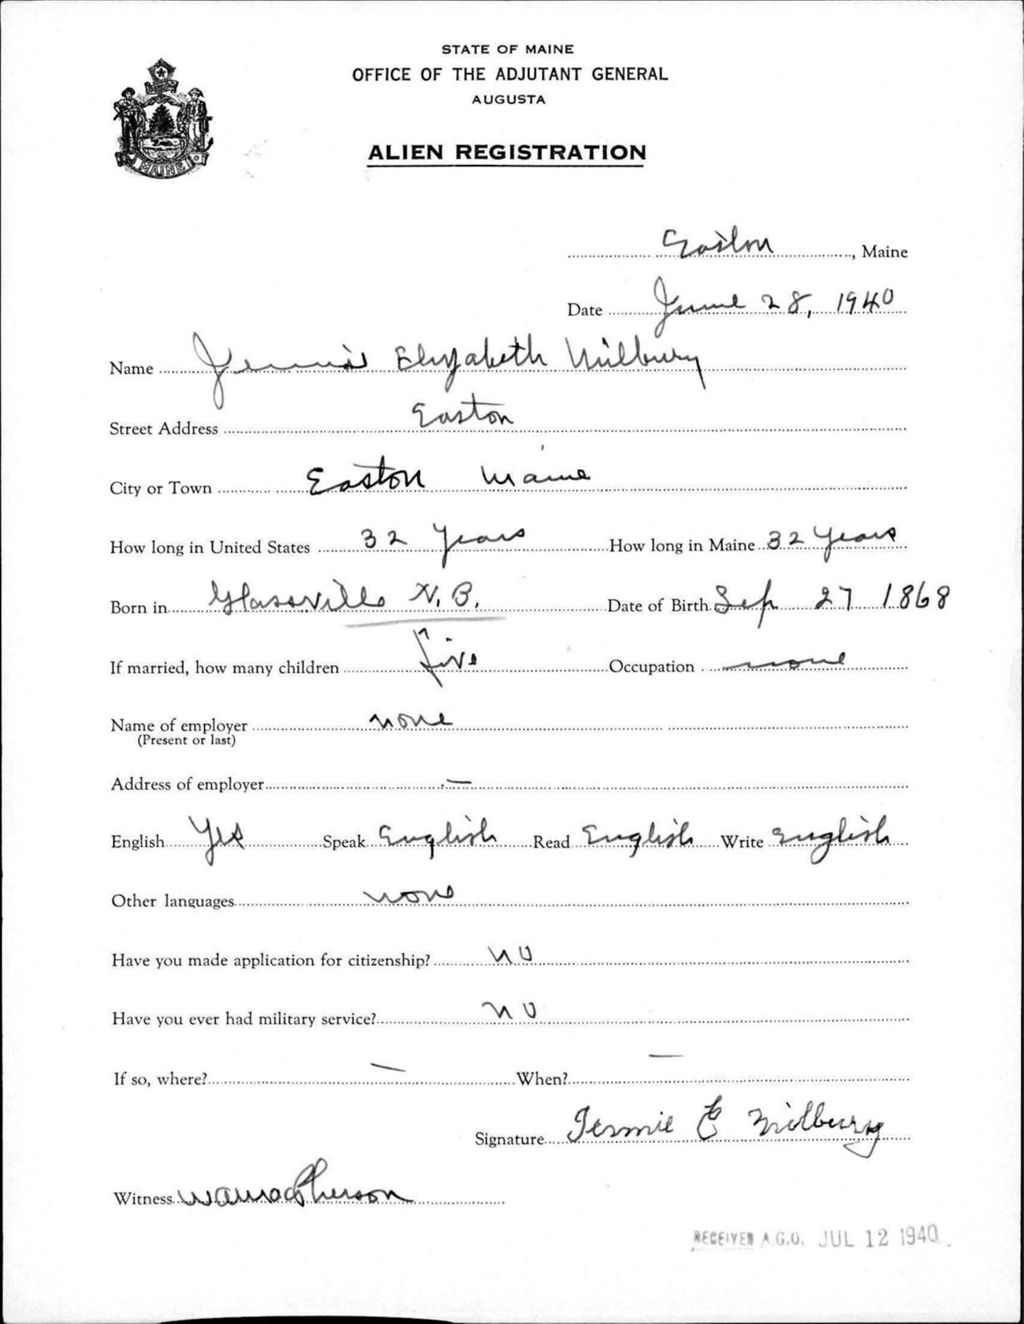 STATE OF MAINE
OFFICE OF THE ADJUTANT GENERAL
AUGUSTA
MAINE
ALIEN REGISTRATION
Easton, Maine
Date June 28, 1940
Name Jennie Elizabeth Milbury
Street Address Easton
City or Town Easton Maine
How long in United States 32 Years How long in Maine 32 Years
Born in Glassville N.B. Date of Birth Sep 27 1868
If married, how many children five Occupation none
Name of employer none
(Present or last)
Address of employer —
English Yes Speak English Read English Write English
Other languages none
Have you made application for citizenship? no
Have you ever had military service? no
If so, where? — When? —
Signature Jennie E Milbury
Witness
RECEIVED A.G.O. JUL 12 1940